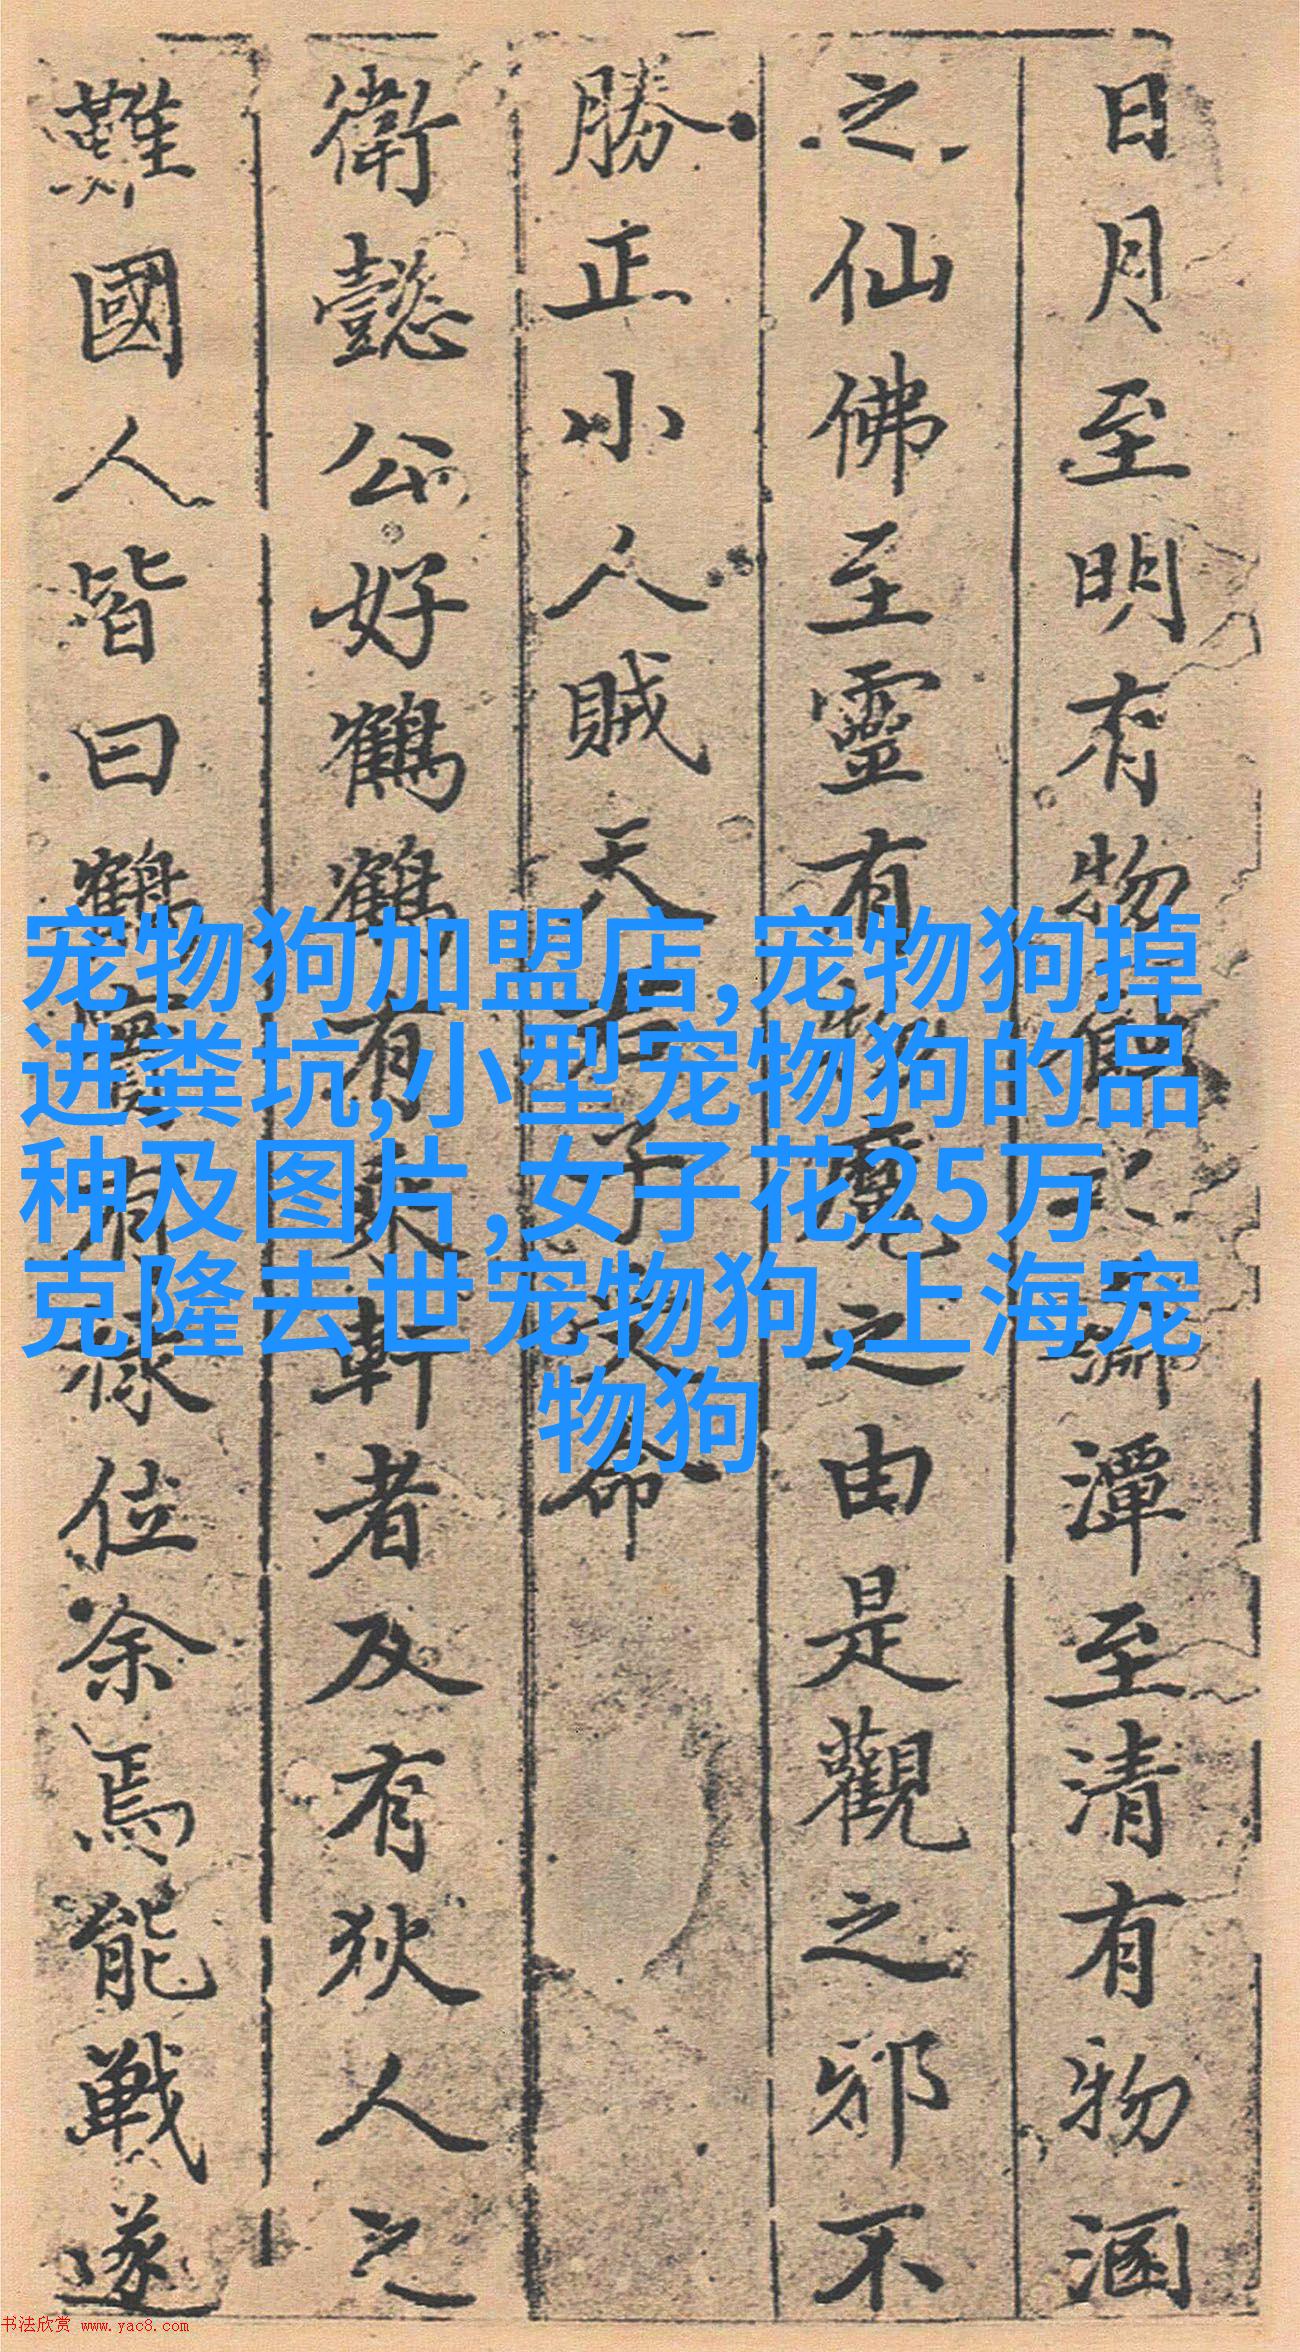 日月至明有物
潭至清有物涵
之仙佛至靈有
之由是觀之邪不
勝正小人賊天
子
命
衛懿公好鶴鶴有
軒者及有狄人之
難國人皆曰鶴
位余焉能戰遂
宠物狗加盟店,宠物狗掉
进粪坑,小型宠物狗的品
种及图片,女子花25万
克隆去世宠物狗,上海宠
物狗
书法欣赏 www.yac8.com